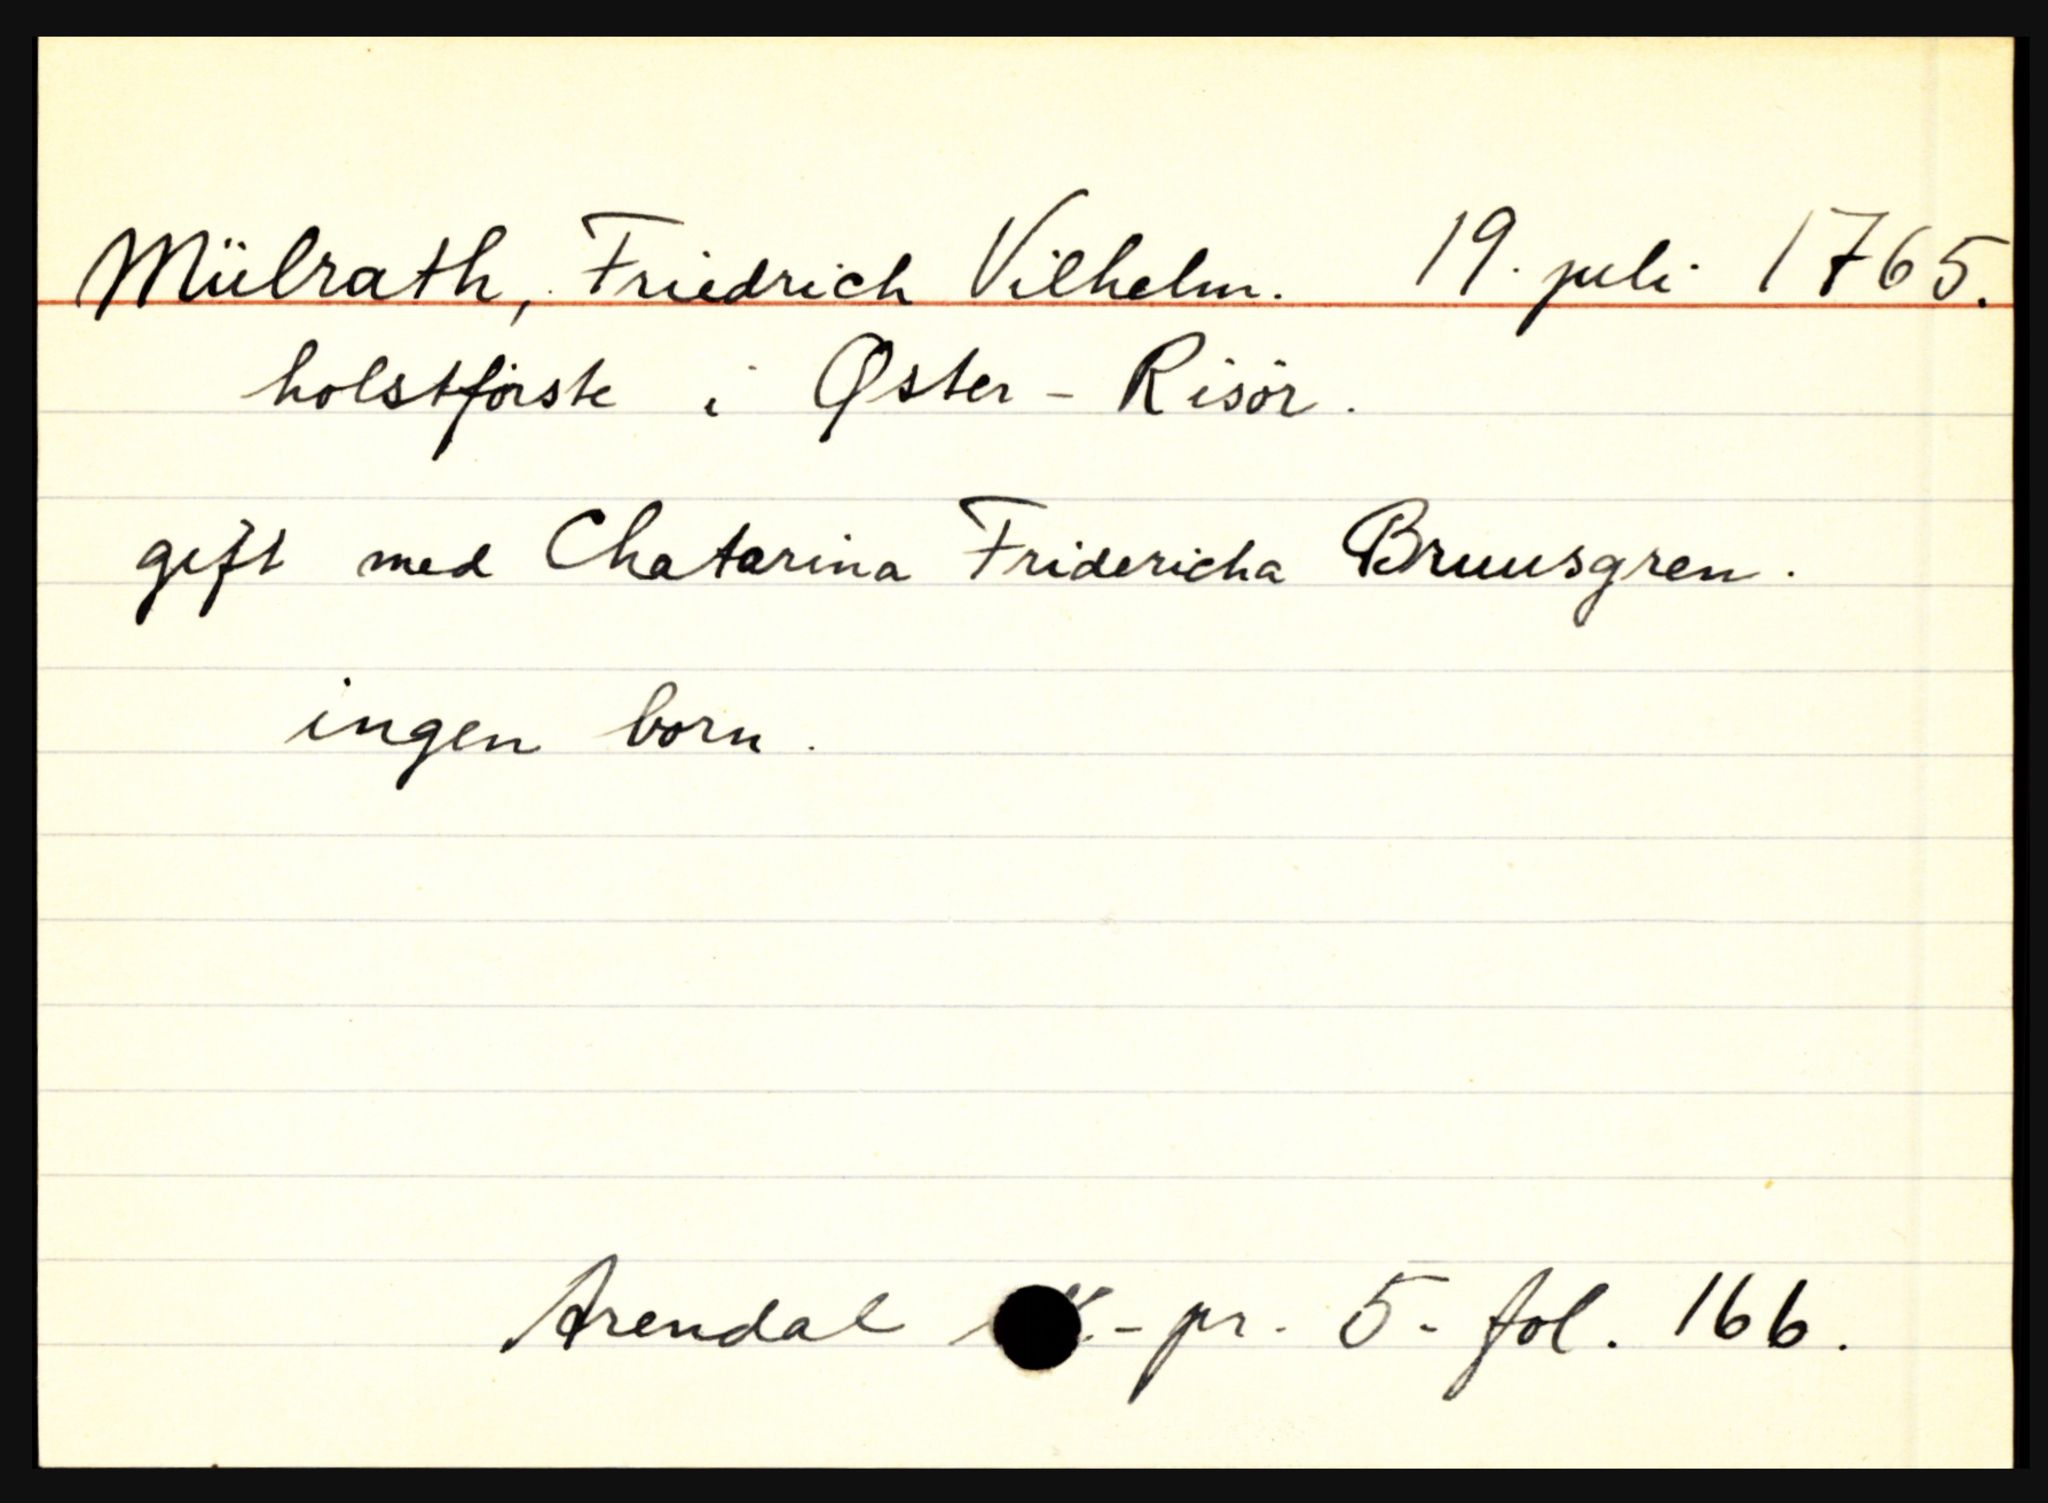 Mülrath, Friedrich Vilhelm. 19. juli 1765.
holstförste i Øster-Risör.
gift med Chatarina Fridericha Bruusgren.
ingen born.
Arendal pr. 5- fol. 166.